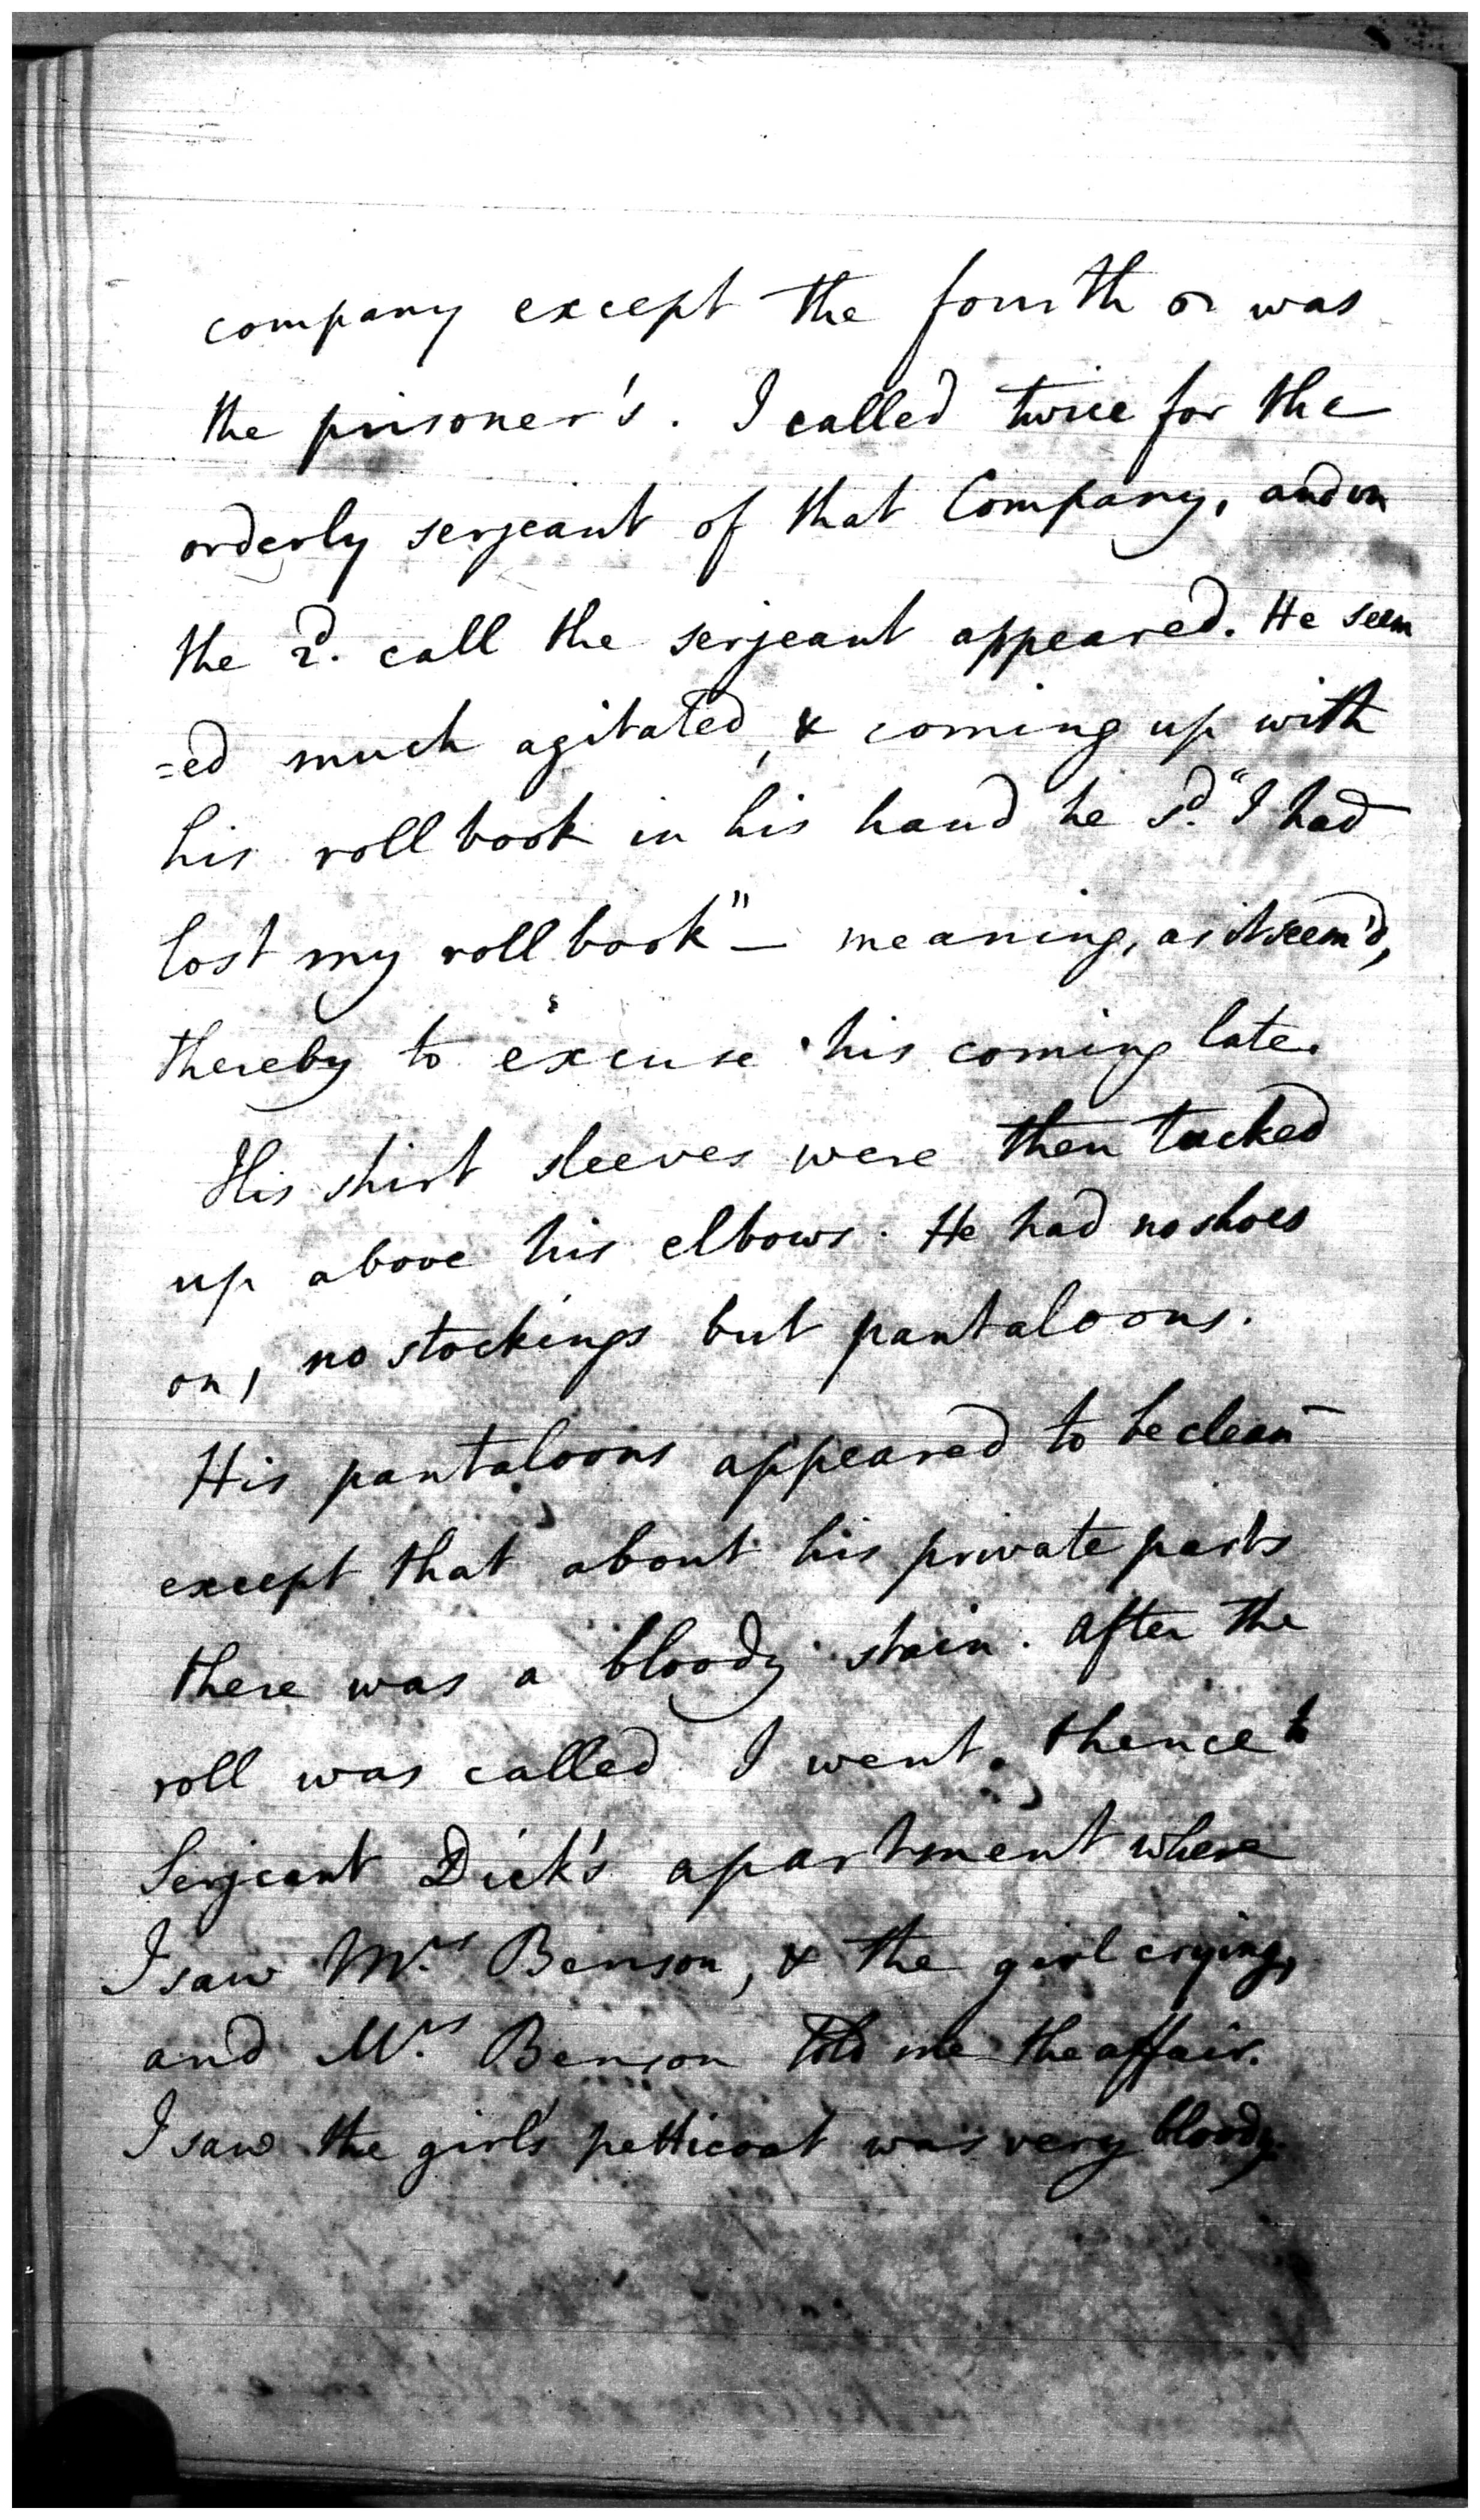 company except the fourth or was
the prisoner's. I called twice for the
orderly serjeant of that Company, and on
the 2d. call the serjeant appeared. He seem
=ed much agitated, & coming up with
his roll book in his hand he sd. "I had
lost my roll book" — meaning, as it seem'd,
thereby to excuse his coming late.
His shirt sleeves were then tucked
up above his elbows. He had no shoes
on, no stockings but pantaloons.
His pantaloons appeared to be clean
except that about his private parts
there was a bloody stain. After the
roll was called I went thence to
Serjeant Dick's apartment where
I saw Mrs Benson, & the girl crying,
and Mrs Benson told me the affair.
I saw the girl's petticoat was very bloody.